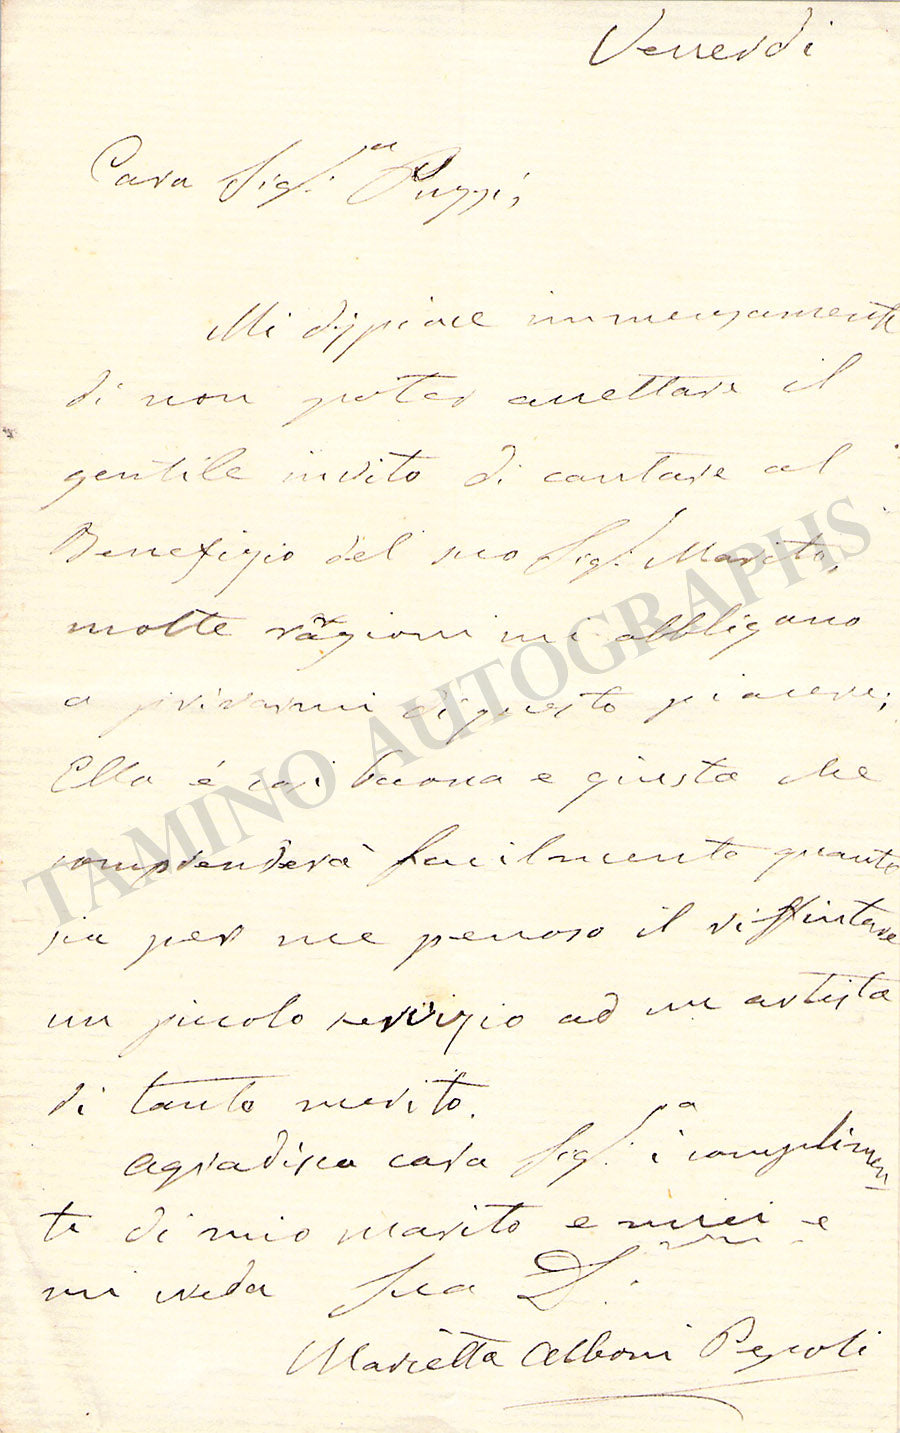 Venerdi
Cara Sigl.ra Puzzi,
Mi dispiace immensamente
di non poter accettare il
gentile invito di cantare al
Benefizio del suo Sigl. Marito,
molte ragioni mi obbligano
a privarmi di questo piacere;
Ella è così buona e giusta che
comprenderà facilmente quanto
sia per me penoso il riffiutare
un piccolo servizio ad un artista
di tanto merito.
Agradisca cara Sigl.a i complimen
ti di mio marito e miei e
mi creda Sua D.
Marietta Alboni Pepoli
TAMINO AUTOGRAPHS